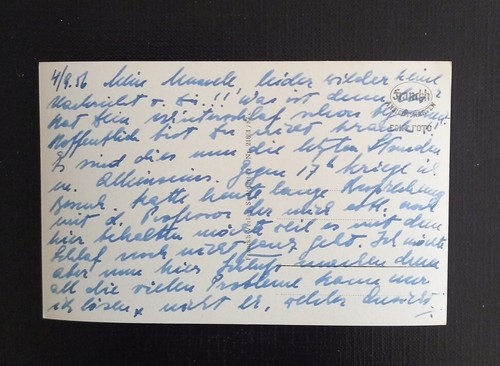 4/9.56 Mein Mausele, leider wieder keine
Nachricht v. Dir!! Was ist denn
hat Dein Winterschlaf schon begonnen?
Hoffentlich bist Du nicht krank!
Es sind dies nun die letzten Stunden
m. Alleinseins. Gegen 17h kriege ich
Besuch. Hatte heute lange Besprechung
mit d. Professor der mich noch
hier behalten möchte weil es mit dem
Schlaf noch nicht ganz geht. Ich möchte
aber nun hier Schluss machen denn
all die vielen Probleme kann nur
ich lösen, nicht er, welcher